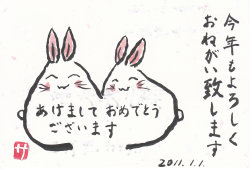 今年もよろしく
おねがい致します
あけまして おめでとう
ございます
2011.1.1.
サ